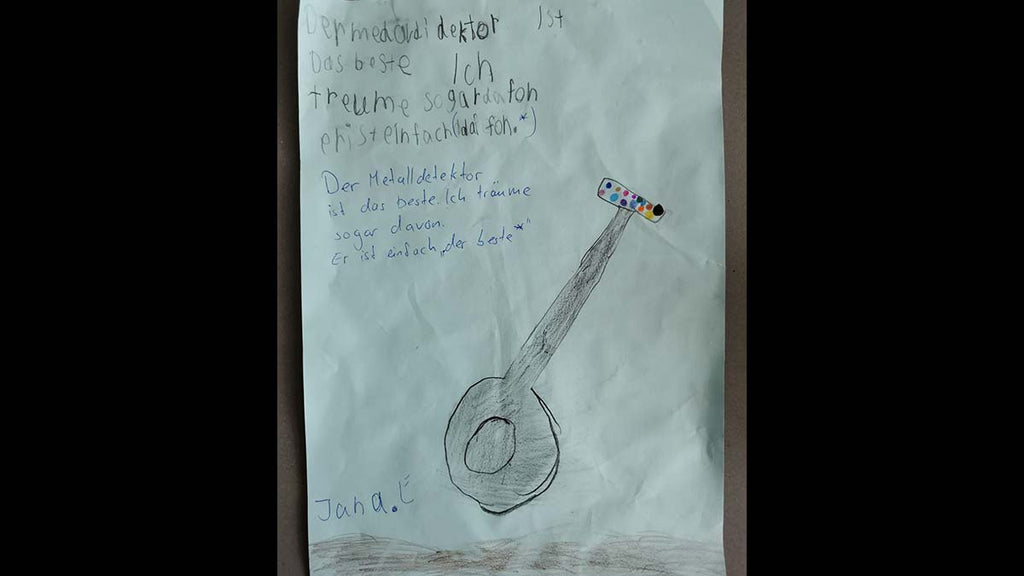 Der medaldi dektor Ist
Das beste Ich
treume sogar dafon
er ist einfach (da fon.*)
Der Metalldetektor
ist das beste. Ich träume
sogar davon.
Er ist einfach „der beste*"
Jana.E